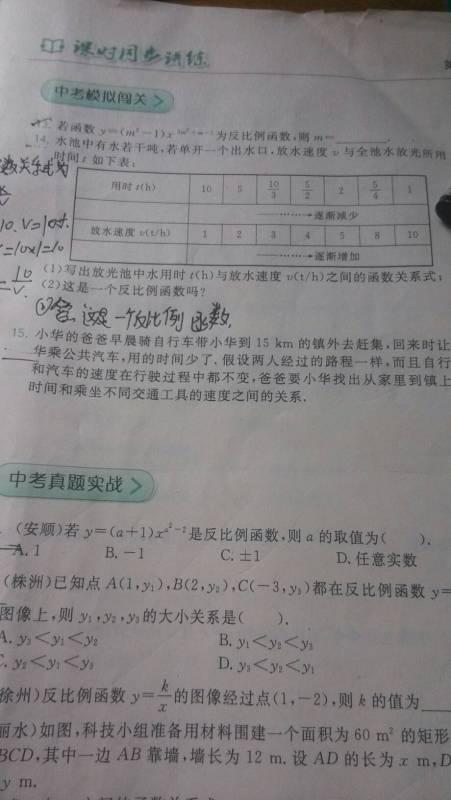 课时同步训练
中考模拟闯关
若函数 y=(m²-1)x 为反比例函数,则 m=______.
14. 水池中有水若干吨,若单开一个出水口,放水速度 v 与全池水放光所用
时间 t 如下表:
用时 t(h) 10 5 10/3 5/2 2 5/4 1
…………→逐渐减少
放水速度 v(t/h) 1 2 3 4 5 8 10
…………→逐渐增加
(1)写出放光池中水用时 t(h)与放水速度 v(t/h)之间的函数关系式;
(2)这是一个反比例函数吗?
②答:这是一个反比例函数.
15. 小华的爸爸早晨骑自行车带小华到 15 km 的镇外去赶集,回来时让
华乘公共汽车,用的时间少了.假设两人经过的路程一样,而且自行
和汽车的速度在行驶过程中都不变,爸爸要小华找出从家里到镇上
时间和乘坐不同交通工具的速度之间的关系.
中考真题实战
(安顺)若 y=(a+1)x^(a²-2) 是反比例函数,则 a 的取值为( ).
A. 1 B. -1 C. ±1 D. 任意实数
(株洲)已知点 A(1,y₁),B(2,y₂),C(-3,y₃)都在反比例函数 y=
图像上,则 y₁,y₂,y₃ 的大小关系是( ).
A. y₃<y₁<y₂ B. y₁<y₂<y₃
C. y₂<y₁<y₃ D. y₃<y₂<y₁
徐州)反比例函数 y=k/x 的图像经过点(1,-2),则 k 的值为____
丽水)如图,科技小组准备用材料围建一个面积为 60 m² 的矩形
BCD,其中一边 AB 靠墙,墙长为 12 m.设 AD 的长为 x m,D
y m.